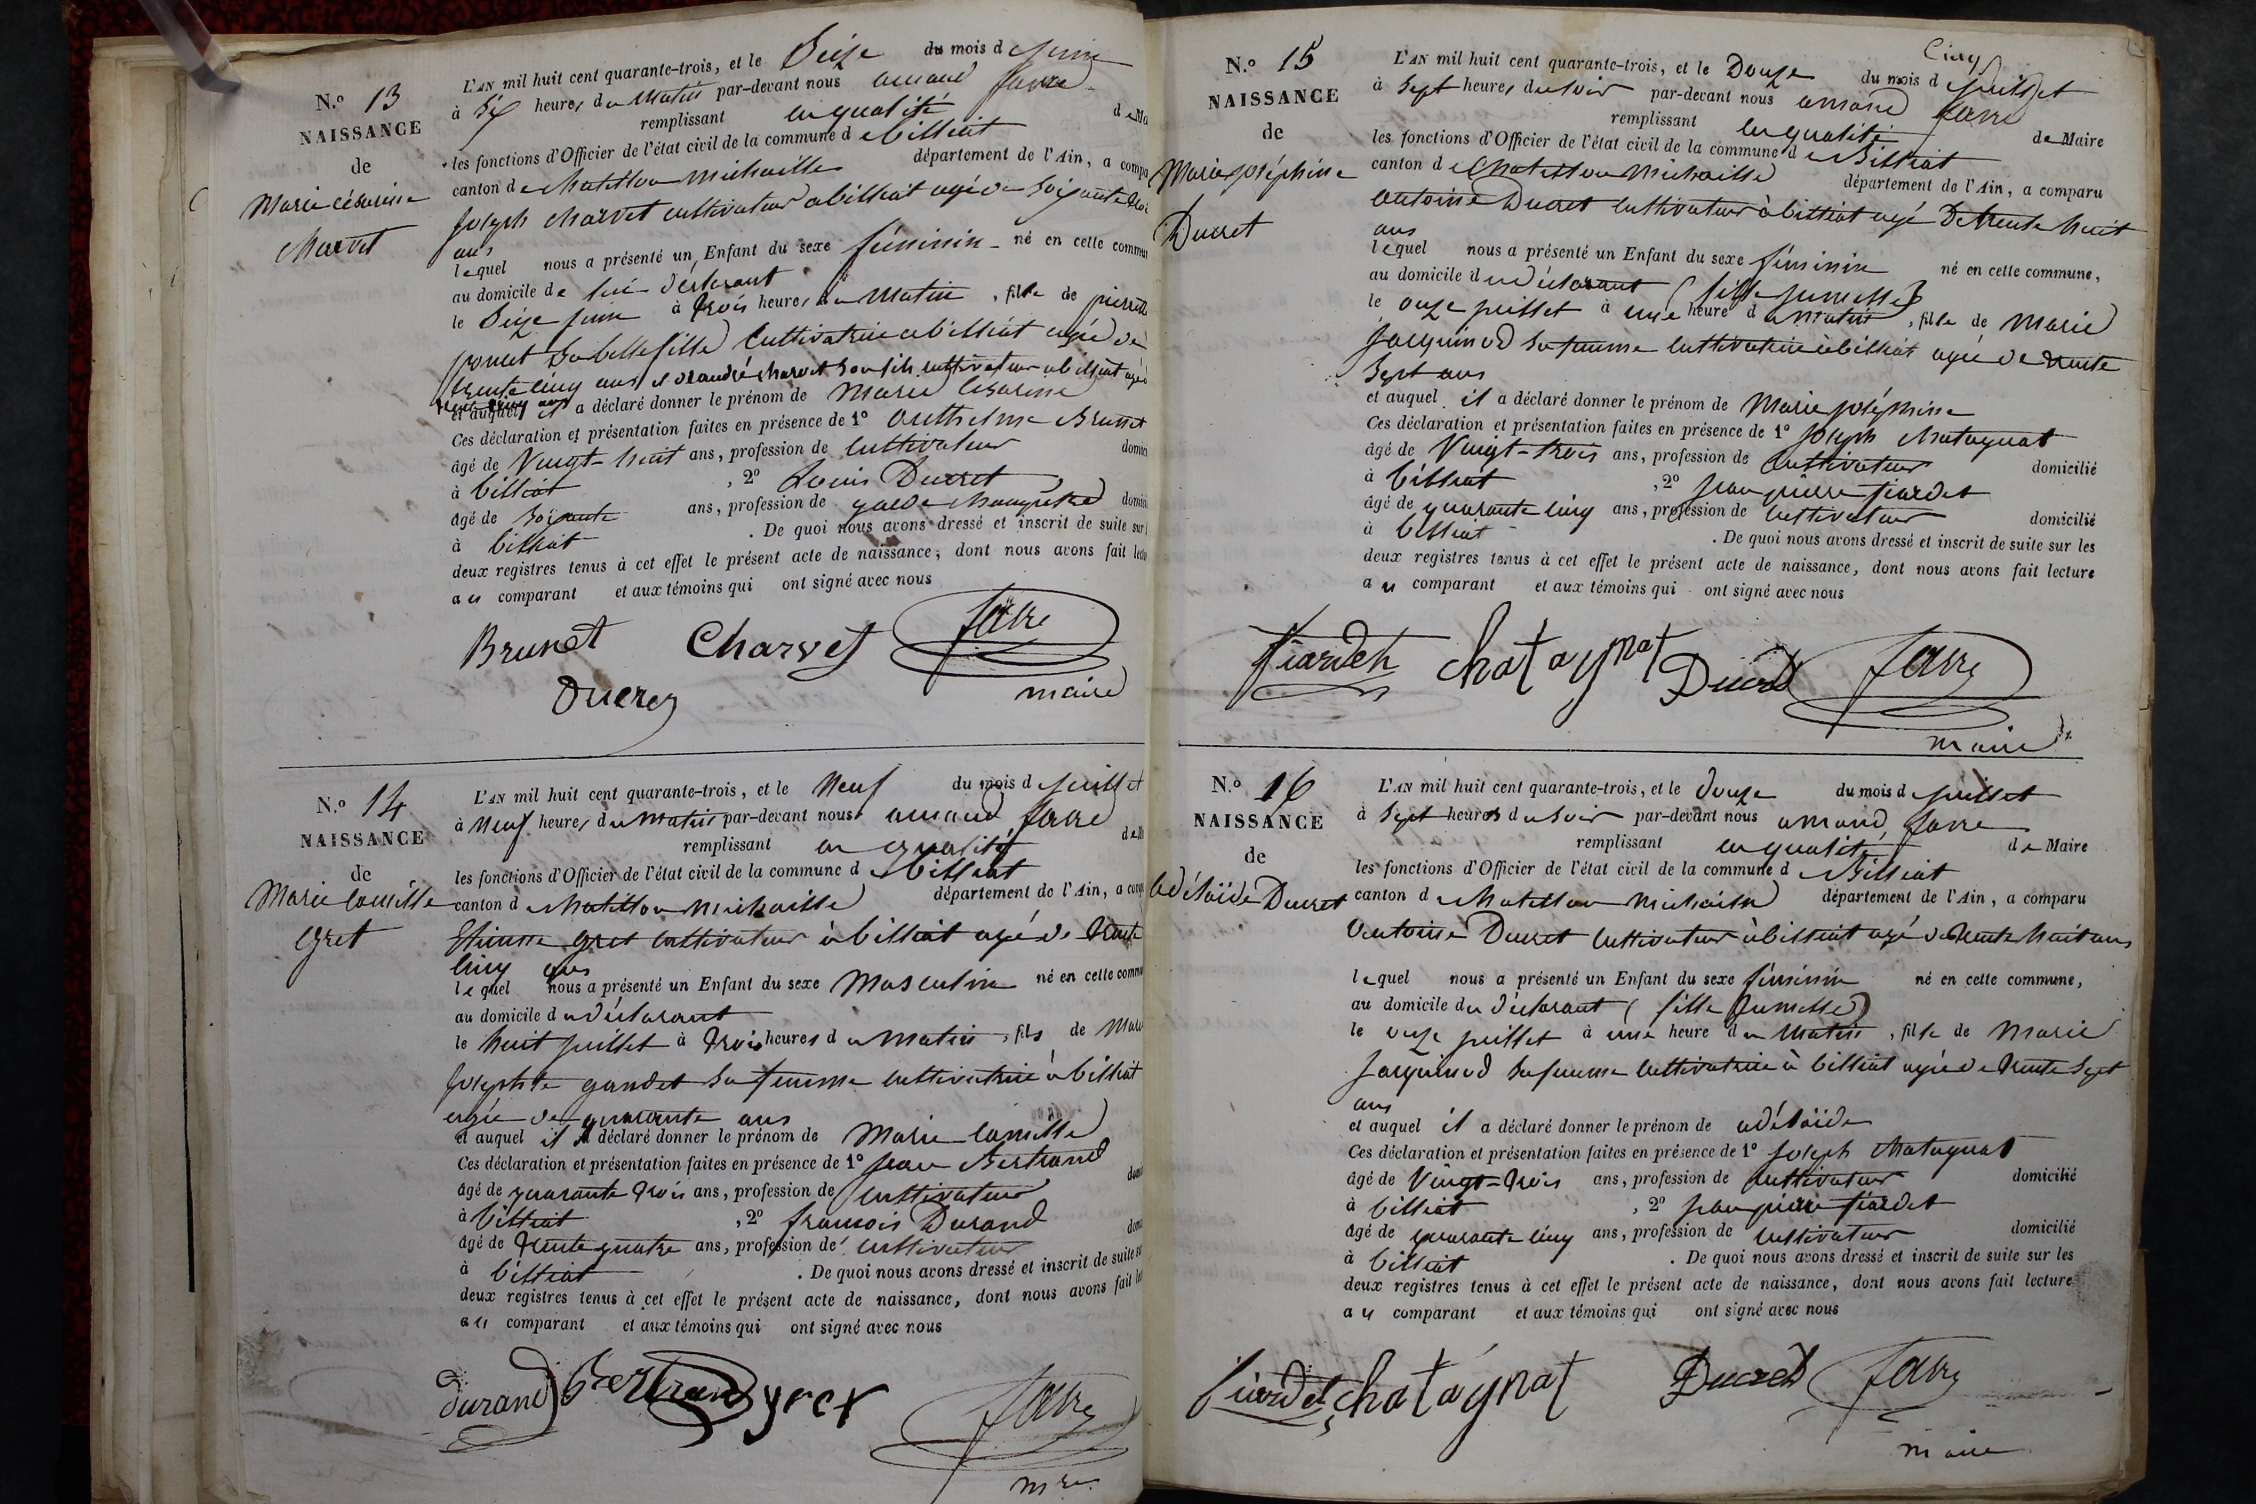 N.º 13
NAISSANCE
de
Marie césarine
Charvet
L'AN mil huit cent quarante-trois, et le Seize du mois de juin
à Six heures du Matin par-devant nous amand favre
remplissant en qualité de Ma
les fonctions d'Officier de l'état civil de la commune de billiat
canton de Chatillon michaille département de l'Ain, a compa
joseph Charvet cultivateur a billiat agé de Soixante troi
ans
lequel nous a présenté un Enfant du sexe féminin né en cette commun
au domicile de lui déclarant
le Seize juin à trois heures du Matin, fille de pierrette
poncet Sa belle fille Cultivatrice a billiat agée de
trente cinq ans et d'andré charvet Son fils cultivateur a billiat agé d
trente cinq ans
et auquel il a déclaré donner le prénom de Marie Césarine
Ces déclaration et présentation faites en présence de 1º anthelme Brunet
âgé de Vingt-huit ans, profession de Cultivateur domici
à billiat, 2º Louis Ducret
âgé de Soixante ans, profession de garde champêtre domici
à billiat. De quoi nous avons dressé et inscrit de suite sur l
deux registres tenus à cet effet le présent acte de naissance, dont nous avons fait lectu
au comparant et aux témoins qui ont signé avec nous
Brunet Charvet favre
Ducret maire
N.º 14
NAISSANCE
de
Marie Camille
gret
L'AN mil huit cent quarante-trois, et le Neuf du mois de juillet
à Neuf heures du Matin par-devant nous amand favre
remplissant en qualité de M
les fonctions d'Officier de l'état civil de la commune de billiat
canton de Chatillon michaille département de l'Ain, a comp
Etienne gret cultivateur à billiat agé de trente
cinq ans
lequel nous a présenté un Enfant du sexe Masculin né en cette commu
au domicile du déclarant
le huit juillet à trois heures du Matin, fils de Mari
josephte gandet Sa femme cultivatrice à billiat
agée de quarante ans
et auquel il a déclaré donner le prénom de Marie Camille
Ces déclaration et présentation faites en présence de 1º jean Bertrand
âgé de quarante trois ans, profession de Cultivateur domi
à billiat, 2º françois Durand
âgé de trente quatre ans, profession de Cultivateur domi
à billiat. De quoi nous avons dressé et inscrit de suite su
deux registres tenus à cet effet le présent acte de naissance, dont nous avons fait lec
au comparant et aux témoins qui ont signé avec nous
durand Bertrand gret favre
mre
Cinq
N.º 15
NAISSANCE
de
Marie joséphine
Ducret
L'AN mil huit cent quarante-trois, et le Douze du mois de juillet
à Sept heures du Soir par-devant nous amand favre
remplissant en qualité de Maire
les fonctions d'Officier de l'état civil de la commune de Billiat
canton de Chatillon Michaille département de l'Ain, a comparu
antoine Ducret cultivateur à billiat agé De trente huit
ans
lequel nous a présenté un Enfant du sexe féminin né en cette commune,
au domicile du déclarant (fille jumelle)
le onze juillet à une heure du matin, fille de Marie
jacquinod Sa femme cultivatrice à billiat agée de trente
Sept ans
et auquel il a déclaré donner le prénom de Marie joséphine
Ces déclaration et présentation faites en présence de 1º joseph Chatagnat
âgé de Vingt-trois ans, profession de Cultivateur domicilié
à billiat, 2º jean pierre fiardet
âgé de quarante cinq ans, profession de cultivateur domicilié
à billiat. De quoi nous avons dressé et inscrit de suite sur les
deux registres tenus à cet effet le présent acte de naissance, dont nous avons fait lecture
au comparant et aux témoins qui ont signé avec nous
fiardet chatagnat Ducret favre
maire
N.º 16
NAISSANCE
de
adélaïde Ducret
L'AN mil huit cent quarante-trois, et le douze du mois de juillet
à Sept heures du Soir par-devant nous amand favre
remplissant en qualité de Maire
les fonctions d'Officier de l'état civil de la commune de Billiat
canton de Chatillon Michaille département de l'Ain, a comparu
antoine Ducret cultivateur à billiat agé de trente huit ans
lequel nous a présenté un Enfant du sexe féminin né en cette commune,
au domicile du déclarant (fille jumelle)
le onze juillet à une heure du Matin, fille de Marie
jacquinod Sa femme cultivatrice à billiat agée de trente Sept
ans
et auquel il a déclaré donner le prénom de adélaïde
Ces déclaration et présentation faites en présence de 1º joseph Chatagnat
âgé de Vingt-trois ans, profession de Cultivateur domicilié
à billiat, 2º jean pierre fiardet
âgé de quarante cinq ans, profession de cultivateur domicilié
à billiat. De quoi nous avons dressé et inscrit de suite sur les
deux registres tenus à cet effet le présent acte de naissance, dont nous avons fait lecture
au comparant et aux témoins qui ont signé avec nous
fiardet chatagnat Ducret favre
maire